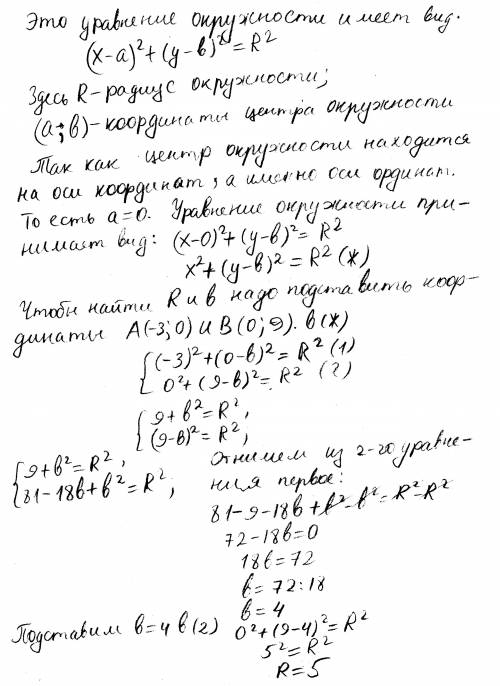 Это уравнение окружности имеет вид.
(x-a)²+(y-b)²=R²
Здесь R-радиус окружности;
(a;b)-координаты центра окружности
Так как центр окружности находится
на оси координат, а именно оси ординат.
То есть a=0. Уравнение окружности при-
нимает вид: (x-0)²+(y-b)²=R²
x²+(y-b)²=R² (ж)
Чтобы найти R и b надо подставить коор-
динаты A(-3;0) и B(0;9). в(ж)
{(-3)²+(0-b)²=R² (1)
0²+(9-b)²=R² (2)
{9+b²=R²,
(9-b)²=R²,
{9+b²=R²,
81-18b+b²=R²;
Отнимем из 2-го уравне-
ния первое:
81-9-18b+b²-b²=R²-R²
72-18b=0
18b=72
b=72:18
b=4
Подставим b=4 в(2) 0²+(9-4)²=R²
5²=R²
R=5